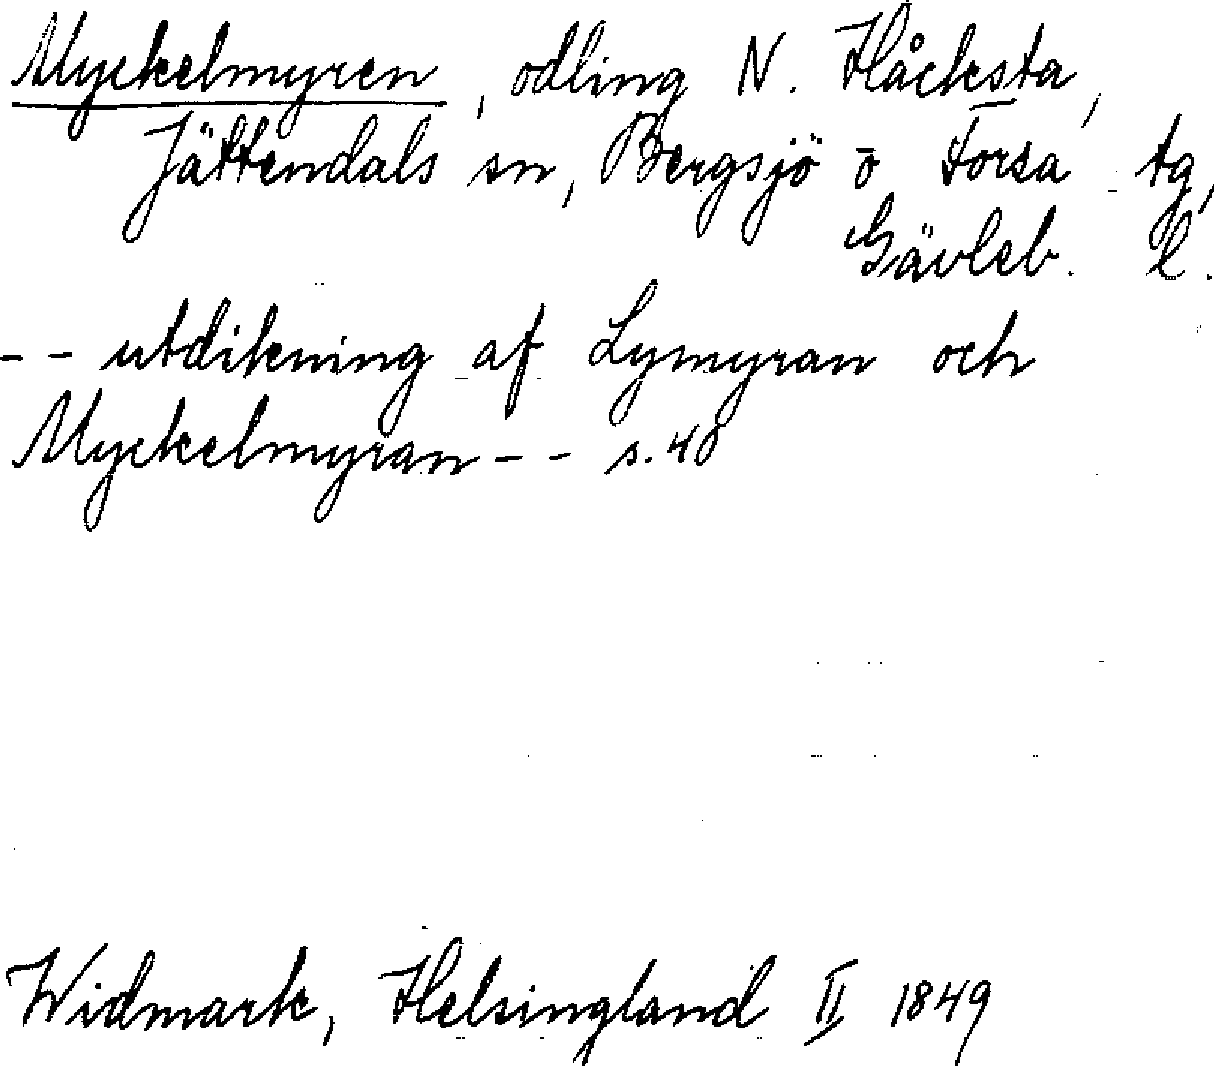 Myckelmyren, odling N. Håcksta,
Jättendals sn, Bergsjö o Forsa tg,
Gävleb. l.
-- utdikning af Lymyran och
Myckelmyran -- s. 48
Widmark, Helsingland II 1849